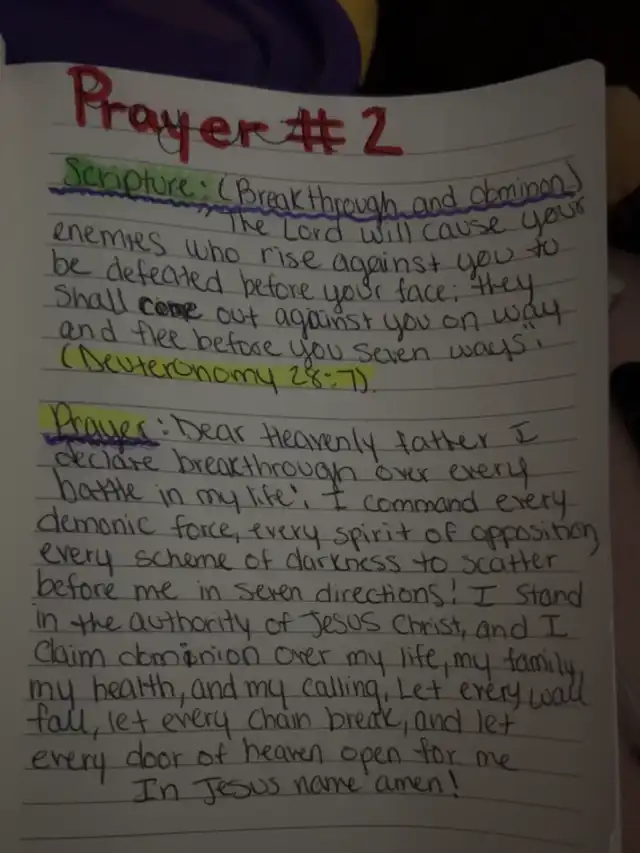 Prayer # 2
Scripture: (Breakthrough and obminon)
"The Lord will cause your
enemies who rise against you to
be defeated before your face; they
shall come out against you on way
and flee before you seven ways".
(Deuteronomy 28:7).
Prayer: Dear Heavenly father I
declare breakthrough over every
battle in my life!. I command every
demonic force, every spirit of opposition,
every scheme of darkness to scatter
before me in seven directions! I stand
in the authority of Jesus Christ, and I
claim dominion over my life, my family,
my health, and my calling. Let every wall
fall, let every chain break, and let
every door of heaven open for me
In Jesus name amen!